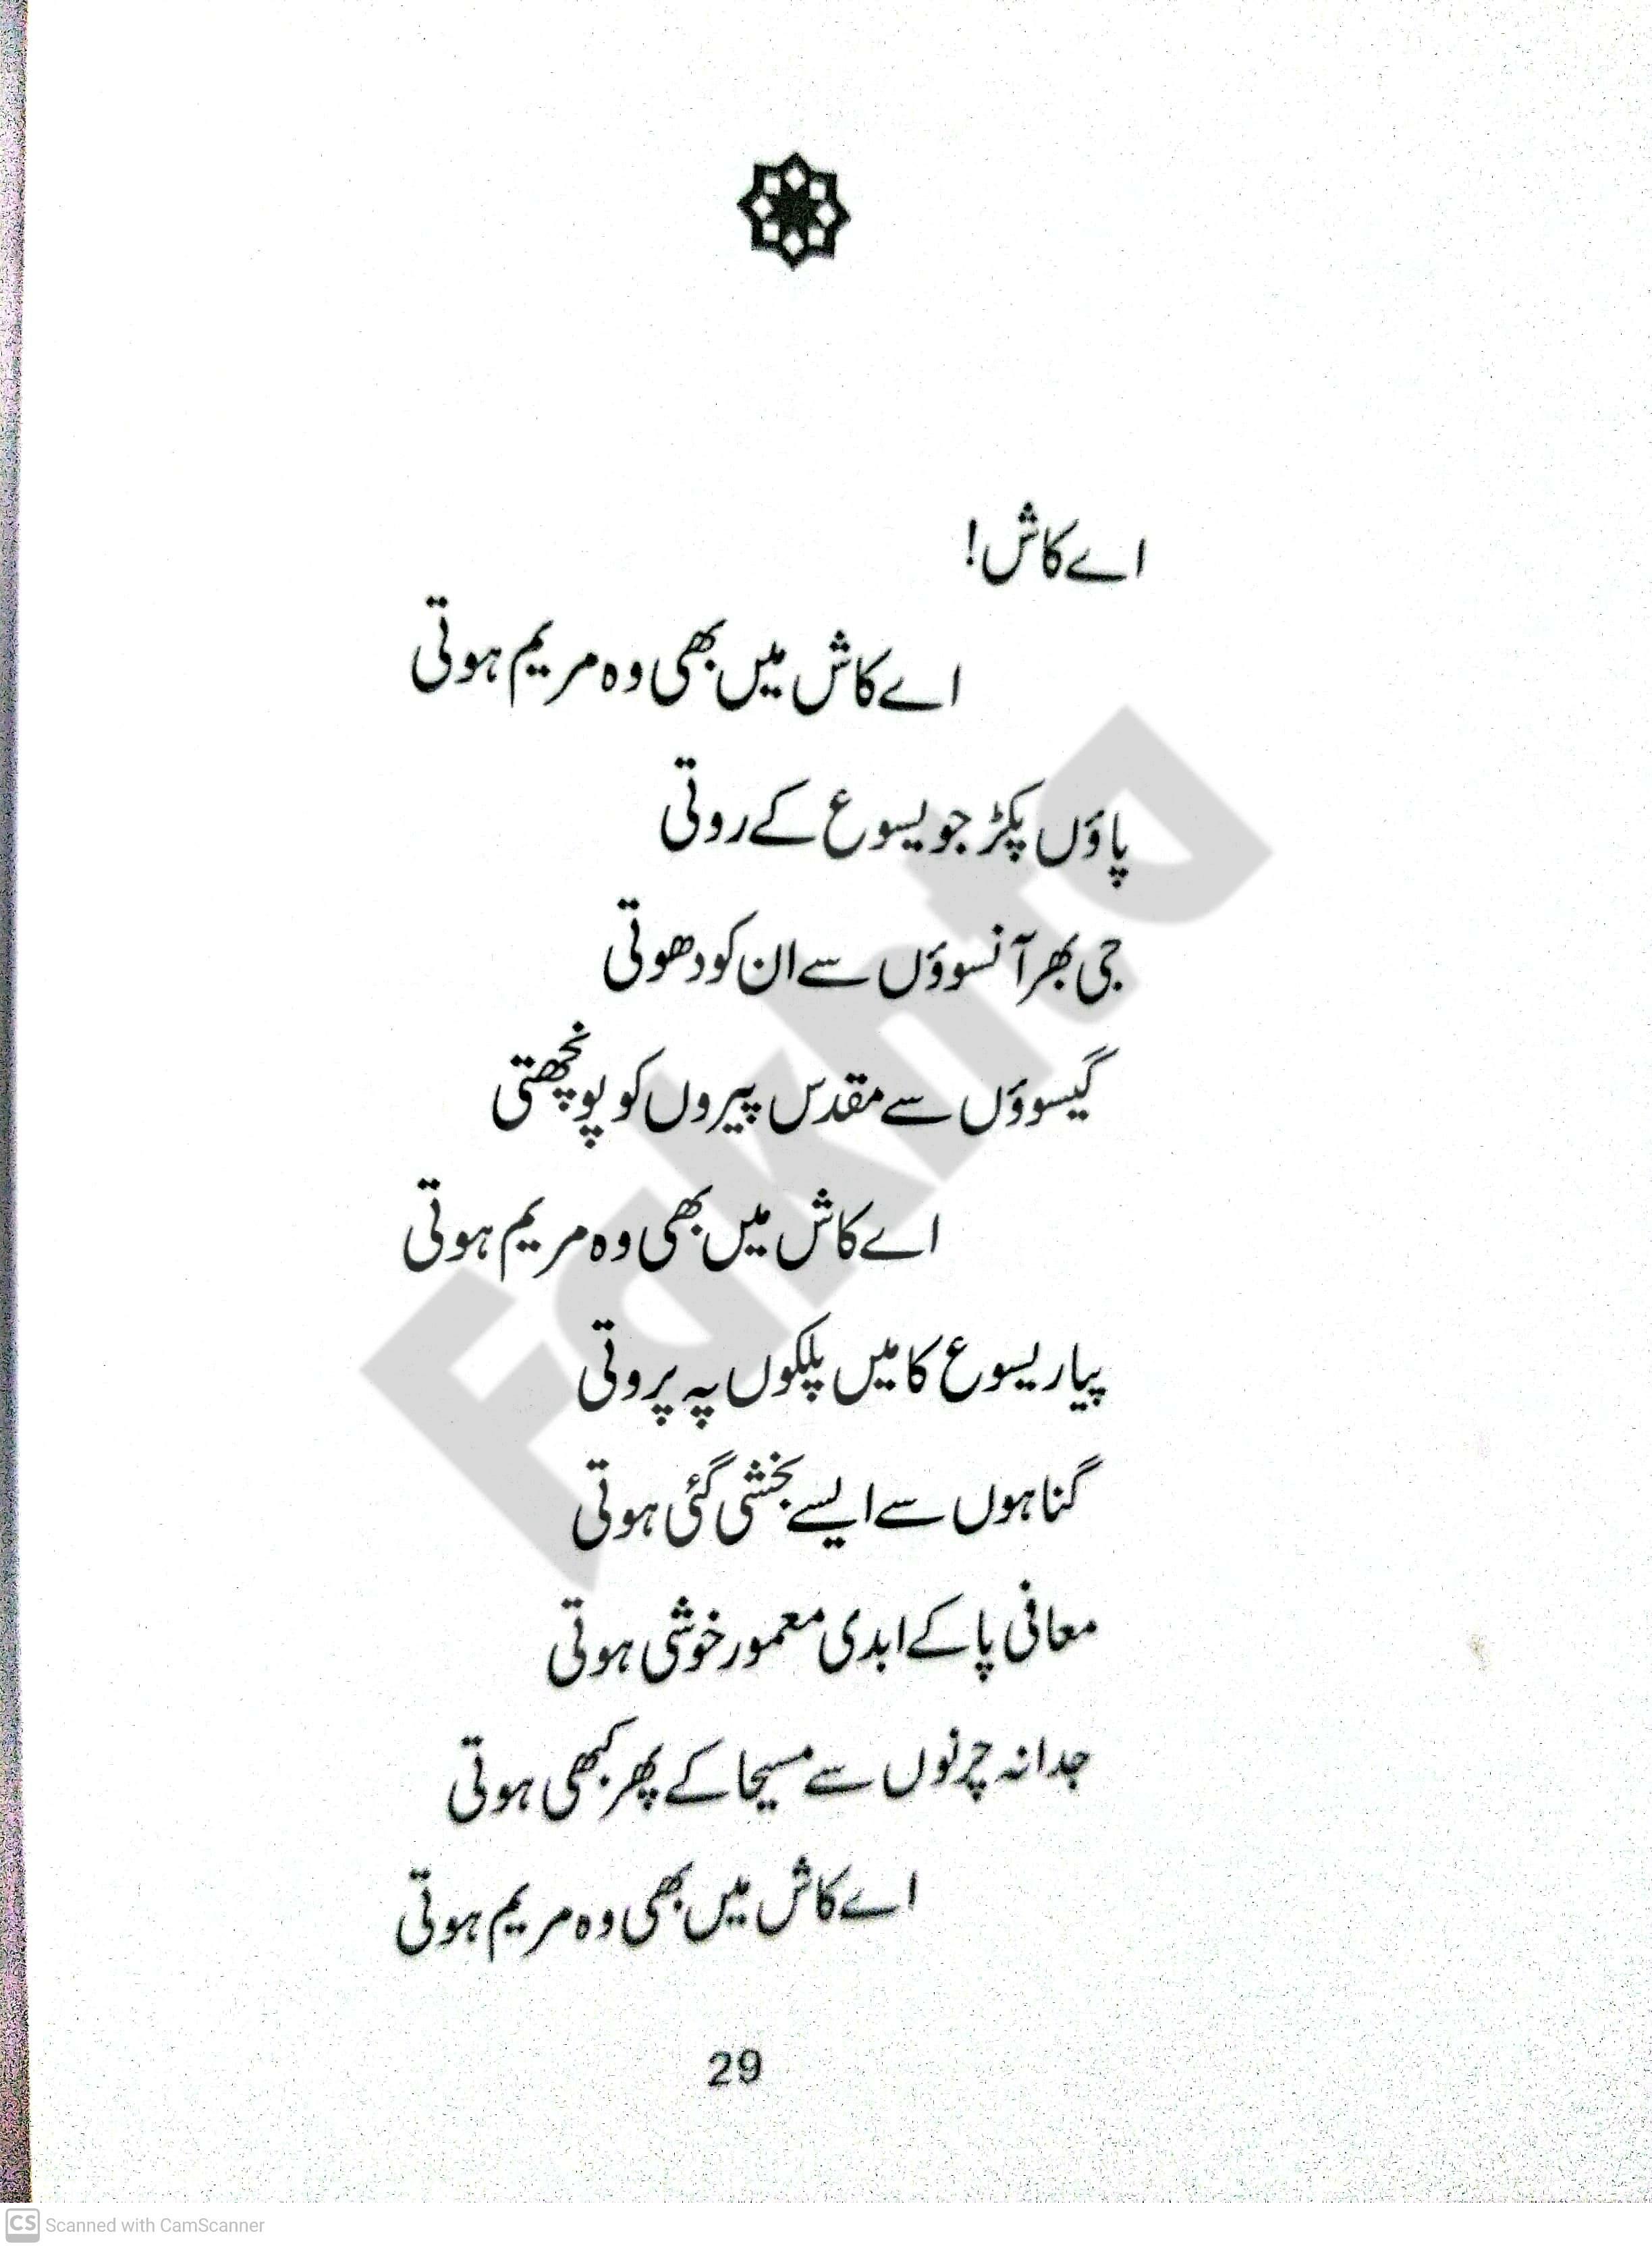 اے کاش!
اے کاش میں بھی وہ مریم ہوتی
پاؤں پکڑ جو یسوع کے روتی
جی بھر آنسوؤں سے ان کو دھوتی
گیسوؤں سے مقدس پیروں کو پونچھتی
اے کاش میں بھی وہ مریم ہوتی
پیار یسوع کا میں پلکوں پہ پروتی
گناہوں سے ایسے بخشی گئی ہوتی
معافی پا کے ابدی معمور خوشی ہوتی
جدا نہ چرنوں سے مسیحا کے پھر کبھی ہوتی
اے کاش میں بھی وہ مریم ہوتی
29
CS Scanned with CamScanner